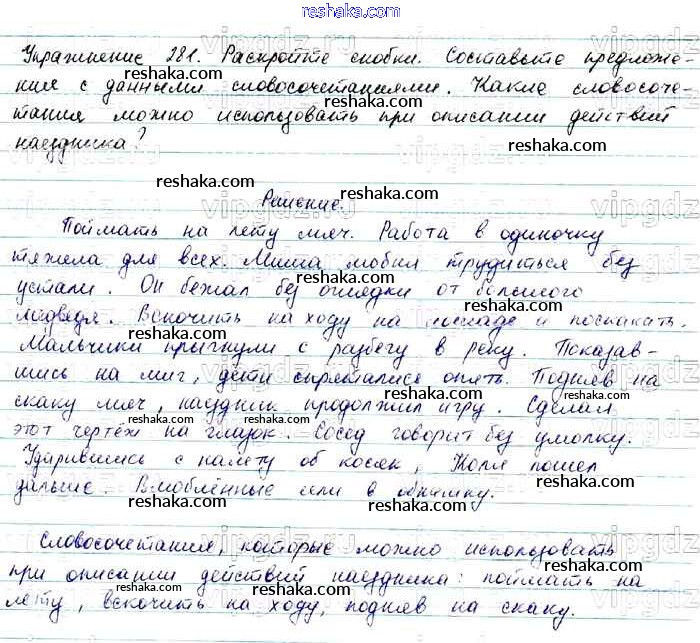 reshaka.com
Упражнение 281. Раскройте скобки. Составьте предложе-
reshaka.com
ния с данными словосочетаниями. Какие словосоче-
reshaka.com
тания можно использовать при описании действий
наездника?
reshaka.com reshaka.com
Решение.
Поймать на лету мяч. Работа в одиночку
тяжела для всех. Миша любил трудиться без
reshaka.com
устали. Он бежал без оглядки от большого
reshaka.com
медведя. Вскочить на ходу на лошаде и поскакать.
reshaka.com
Мальчики прыгнули с разбегу в реку. Показав-
reshaka.com
шись на миг, дети спрятались опять. Подняв на
reshaka.com
скаку мяч, наездник продолжил игру. Сделал
reshaka.com
этот чертёж на глазок. Сосед говорит без умолку.
reshaka.com
Ударившись с налету об косяк, Коля пошел
reshaka.com
дальше. Влюблённые шли в обнимку.
reshaka.com
reshaka.com
Словосочетания, которые можно использовать
при описании действий наездника: поймать на
reshaka.com
лету, вскочить на ходу, подняв на скаку.
reshaka.com